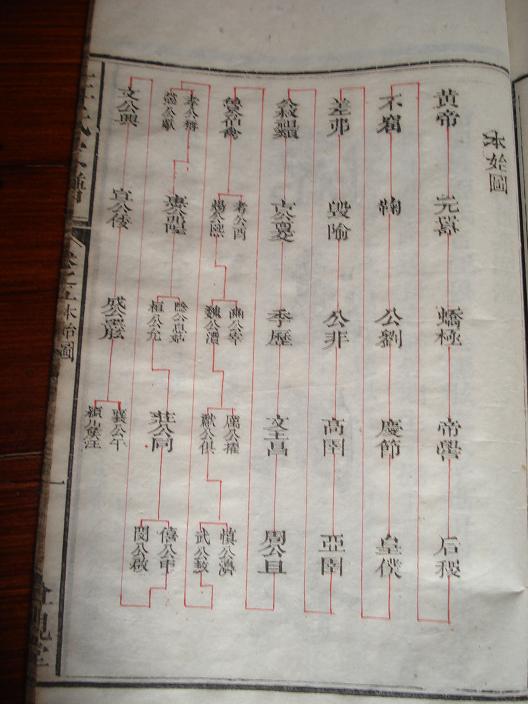 本始圖
黃帝 元囂 蟜極 帝嚳 后稷
不窋 鞠 公劉 慶節 皇僕
差弗 毀隃 公非 高圉 亞圉
公叔祖類 古公亶父 季歷 文王昌 周公旦
考公酋 幽公宰 厲公擢 慎公濞
煬公熙 魏公潰 獻公俱 武公敖
孝公稱 隱公息姑 莊公同 僖公申
懿公戲 桓公允 閔公啟
文公興 襄公午
本始圖
一